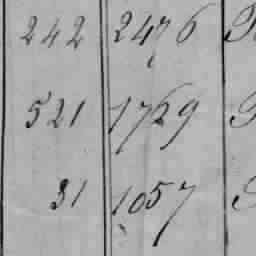 242 2476
521 1729
31 1057